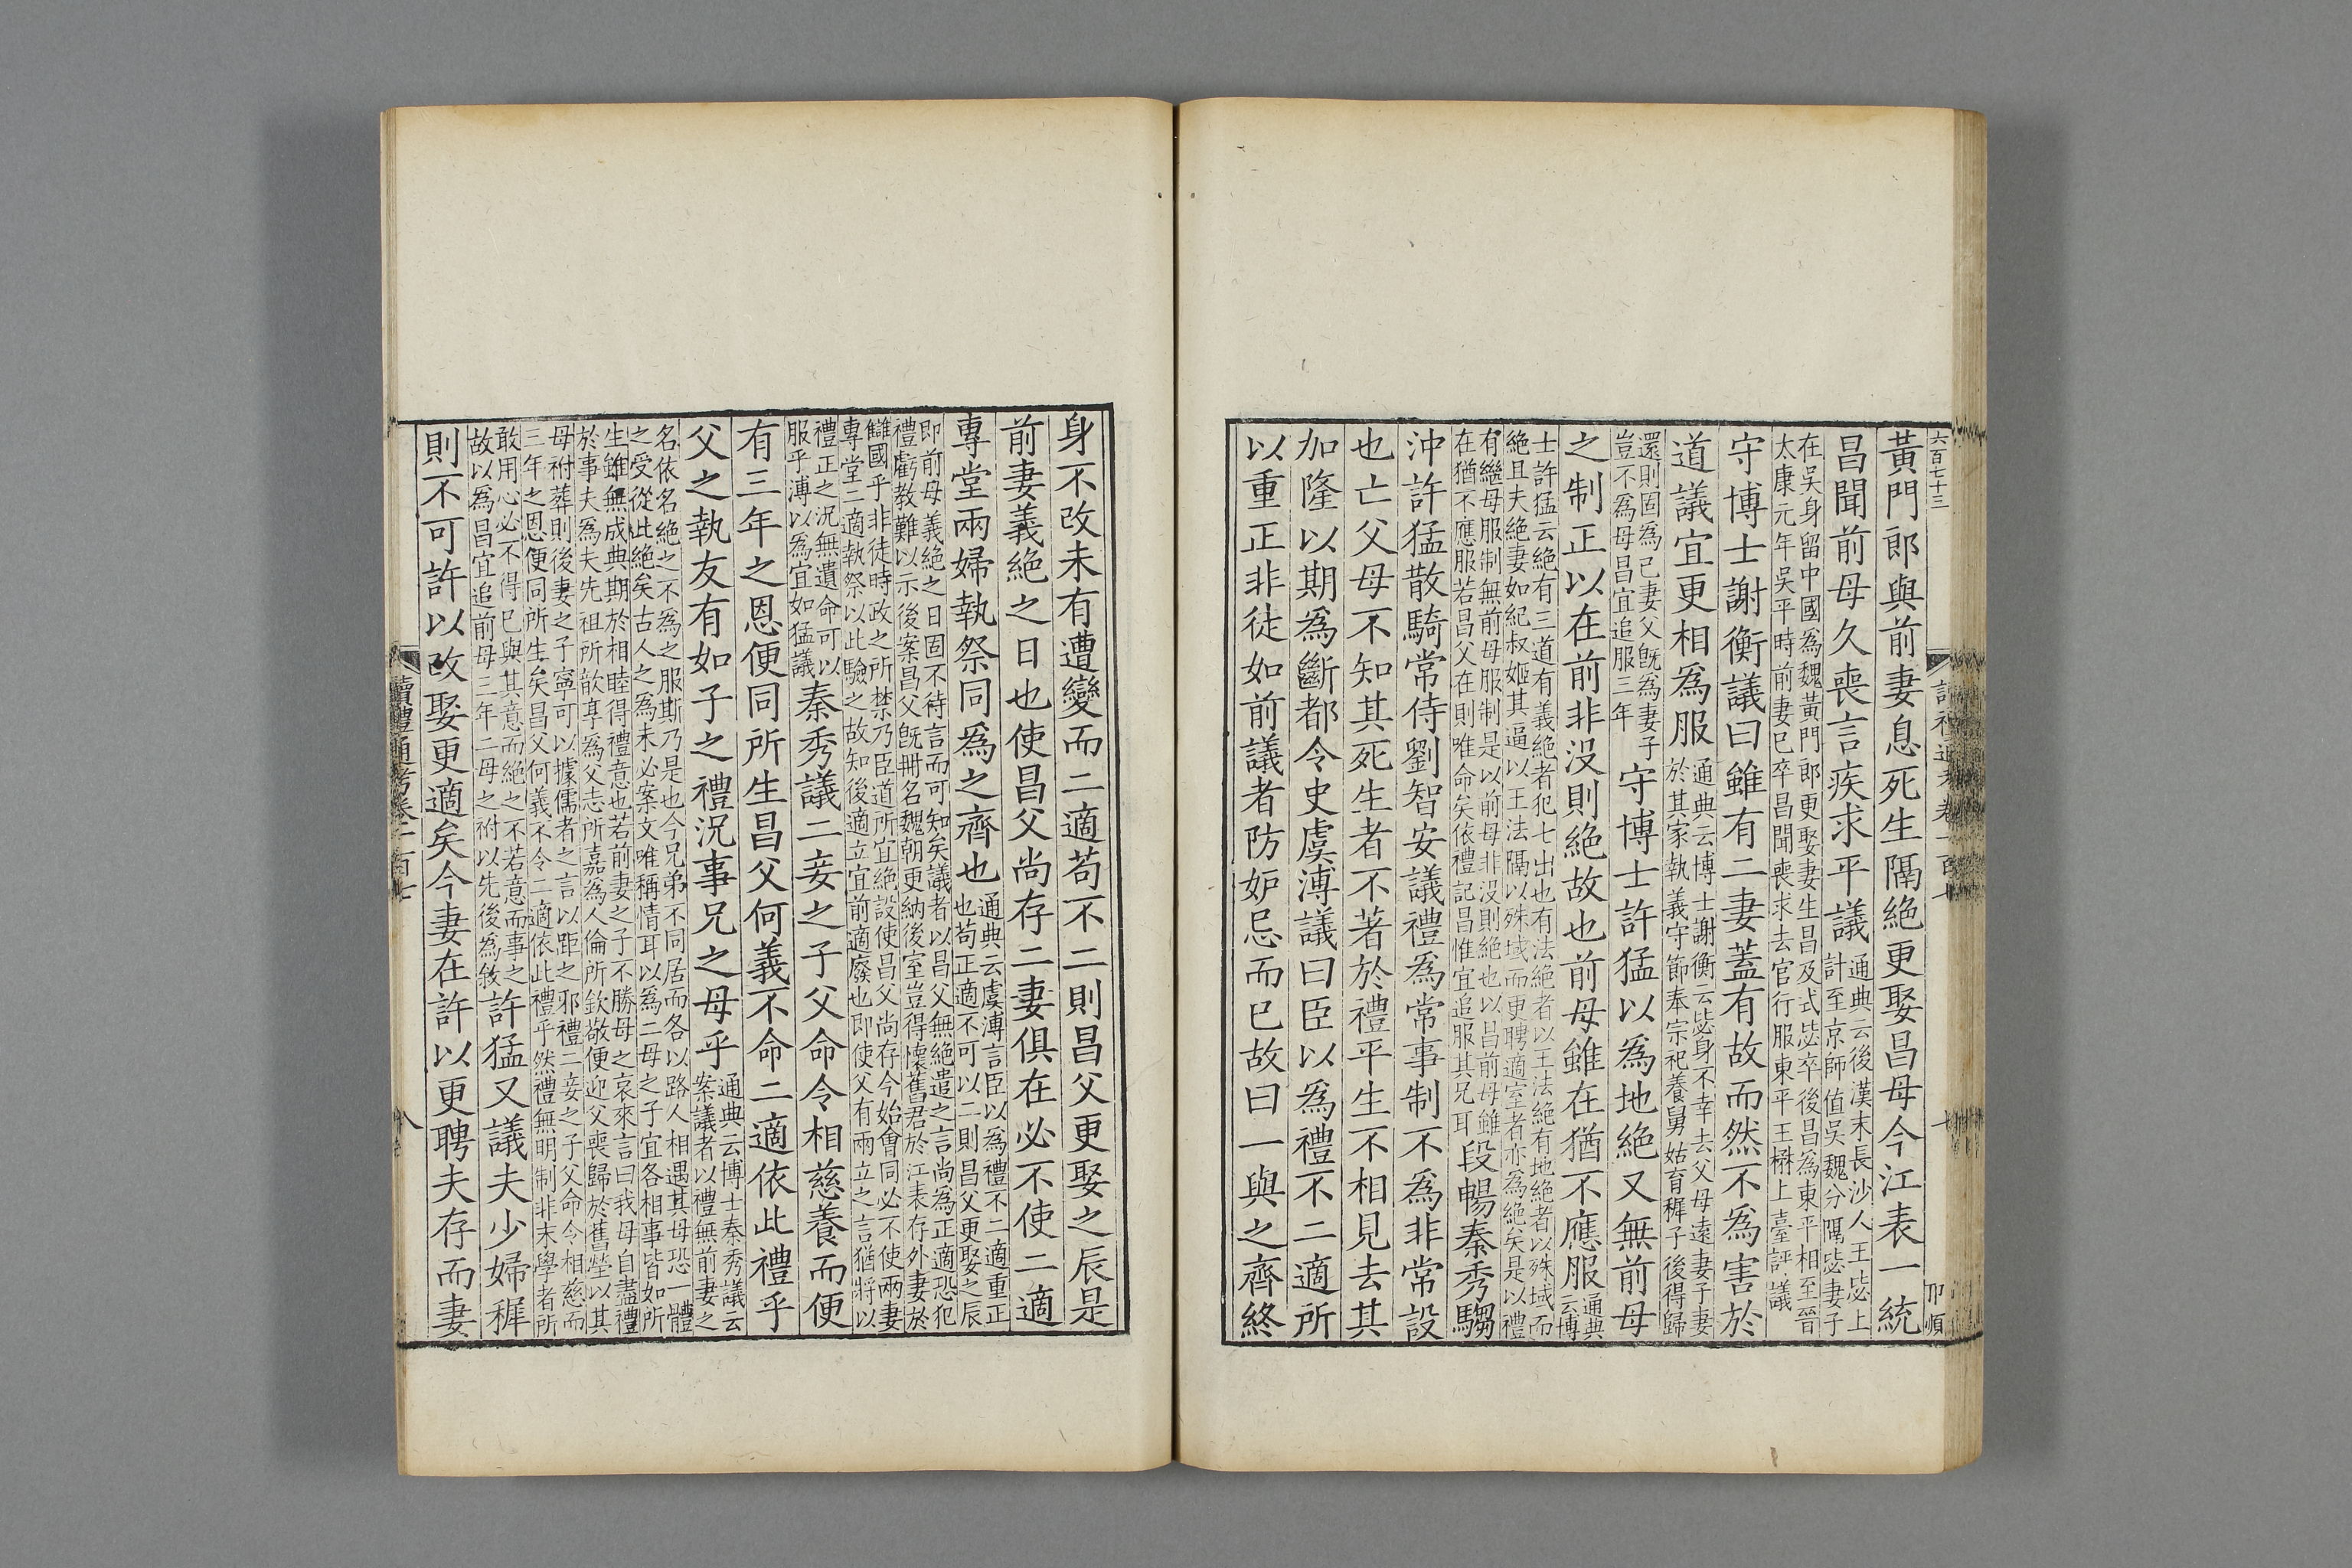 六百七十三
黃門郎與前妻息死生隔絶更娶昌母今江表一統
昌聞前母久喪言疾求平議
通典云後漢末長沙人王毖上
計至京師值吳魏分隔毖妻子
在吳身留中國為魏黃門郎更娶妻生昌及式毖卒後昌為東平相至晉
太康元年吳平時前妻已卒昌聞喪求去官行服東平王楙上臺評議
守博士謝衡議曰雖有二妻蓋有故而然不為害於
道議宜更相爲服
通典云博士謝衡云毖身不幸去父母遠妻子妻
於其家執義守節奉宗祀養舅姑育穉子後得歸
還則固為己妻父既為妻子
豈不為母昌宜追服三年
守博士許猛以為地絶又無前母
之制正以在前非没則絶故也前母雖在猶不應服
通典
云博
士許猛云絶有三道有義絶者犯七出也有法絶者以王法絶有地絶者以殊域而
絶且夫絶妻如紀叔姬其逼以王法隔以殊域而更聘適室者亦為絶矣是以禮
有繼母服制無前母服制是以前母非没則絶也以昌前母雖
在猶不應服若昌父在則唯命矣依禮記昌惟宜追服其兄耳
段暢秦秀騶
沖許猛散騎常侍劉智安議禮爲常事制不為非常設
也亡父母不知其死生者不著於禮平生不相見去其
加隆以期爲斷都令史虞溥議曰臣以爲禮不二適所
以重正非徒如前議者防妒忌而已故曰一與之齊終
身不改未有遭變而二適苟不二則昌父更娶之辰是
前妻義絶之日也使昌父尚存二妻俱在必不使二適
專堂兩婦執祭同爲之齊也
通典云虞溥言臣以為禮不二適重正
也苟正適不可以二則昌父更娶之辰
即前母義絶之日固不待言而可知矣議者以昌父無絶遣之言尚為正適恐犯
禮虧教難以示後案昌父既冊名魏朝更納後室豈得懷舊君於江表存外妻於
讎國乎非徒時政之所禁乃臣道所宜絶設使昌父尚存今始會同必不使兩妻
專堂二適執祭以此驗之故知後適立宜前適廢也即使父有兩立之言猶將以
禮正之況無遺命可以
服乎溥以為宜如猛議
秦秀議二妾之子父命令相慈養而便
有三年之恩便同所生昌父何義不命二適依此禮乎
父之執友有如子之禮況事兄之母乎
通典云博士秦秀議云
案議者以禮無前妻之
名依名絶之不為之服斯乃是也今兄弟不同居而各以路人相遇其母恐一體
之受從此絶矣古人之為未必案文唯稱情耳以為二母之子宜各相事皆如所
生雖無成典期於相睦得禮意也若前妻之子不勝母之哀來言曰我母自盡禮
於事夫為夫先祖所歆享為父志所嘉為人倫所欽敬便迎父喪歸於舊塋以其
母祔葬則後妻之子寧可以據儒者之言以距之邪禮二妾之子父命令相慈而
三年之恩便同所生矣昌父何義不令二適依此禮乎然禮無明制非末學者所
敢用心必不得已與其意而絶之不若意而事之
故以為昌宜追前母三年二母之祔以先後為敘
許猛又議夫少婦穉
則不可許以改娶更適矣今妻在許以更聘夫存而妻
讀禮通考卷一百七
八